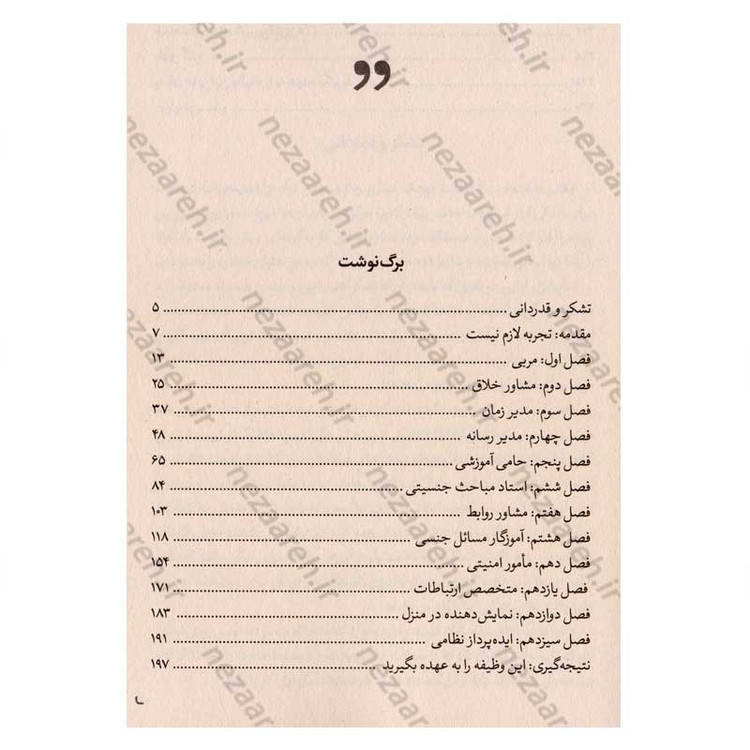 برگ‌نوشت
تشکر و قدردانی ........ ۵
مقدمه: تجربه لازم نیست ........ ۷
فصل اول: مربی ........ ۱۳
فصل دوم: مشاور خلاق ........ ۲۵
فصل سوم: مدیر زمان ........ ۳۷
فصل چهارم: مدیر رسانه ........ ۴۸
فصل پنجم: حامی آموزشی ........ ۶۵
فصل ششم: استاد مباحث جنسیتی ........ ۸۴
فصل هفتم: مشاور روابط ........ ۱۰۳
فصل هشتم: آموزگار مسائل جنسی ........ ۱۱۸
فصل دهم: مأمور امنیتی ........ ۱۵۴
فصل یازدهم: متخصص ارتباطات ........ ۱۷۱
فصل دوازدهم: نمایش‌دهنده در منزل ........ ۱۸۳
فصل سیزدهم: ایده‌پرداز نظامی ........ ۱۹۱
نتیجه‌گیری: این وظیفه را به عهده بگیرید ........ ۱۹۷
nezaareh.ir